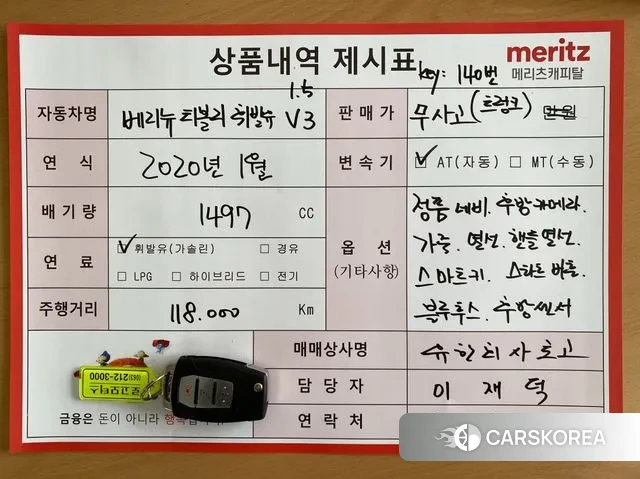 상품내역 제시표
key: 140번
meritz
메리츠캐피탈
자동차명
베리뉴 티볼리 휘발유 1.5 V3
판매가
무사고(트렁크) 만원
연 식
2020년 1월
변속기
☑ AT(자동) ☐ MT(수동)
배기량
1497 CC
옵 션
(기타사항)
정품 네비. 후방카메라.
가죽. 열선. 핸들열선.
스마트키. 스타트 버튼.
블루투스. 후방센서
연 료
☑ 휘발유(가솔린) ☐ 경유
☐ LPG ☐ 하이브리드 ☐ 전기
주행거리
118.000 Km
매매상사명
유한회사 로고
담 당 자
이 재 덕
연 락 처
로고모터스
(063)212-3000
금융은 돈이 아니라 행복
CARSKOREA